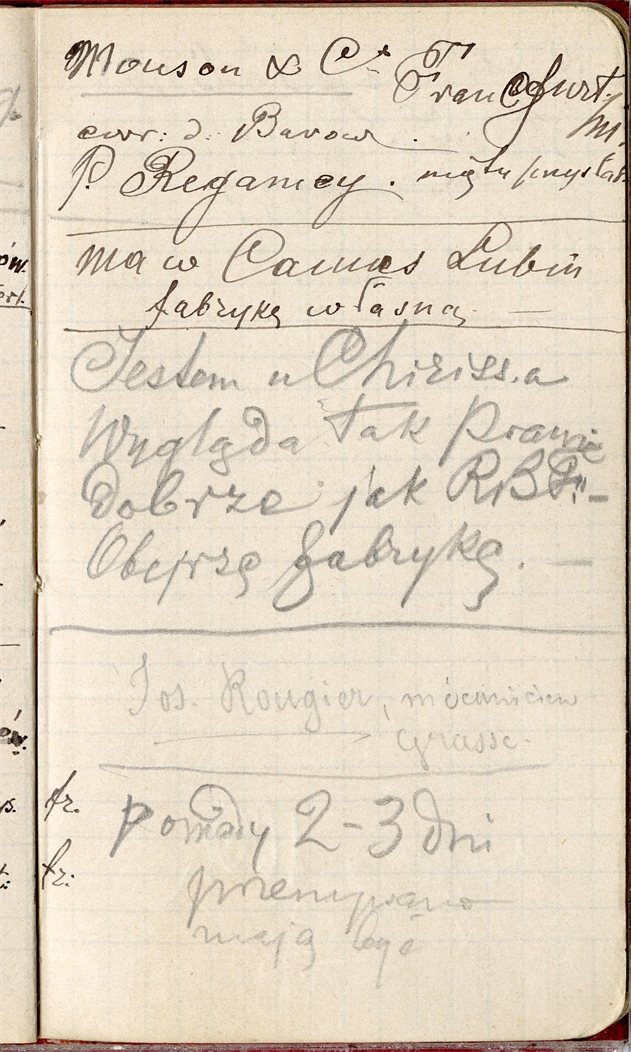 Mouson & Co Francfurt
M.
P. Regamey.
ma w Cannes Lubin
fabrykę własną —
Jestem u Chiriss.a
Wygląda tak prawie
dobrze jak RBF. —
Obejrzę fabrykę. —
Jos. Rougier, mécanicien
Grasse.
fr. pomady 2-3 dni
fr. przemywane
mają być